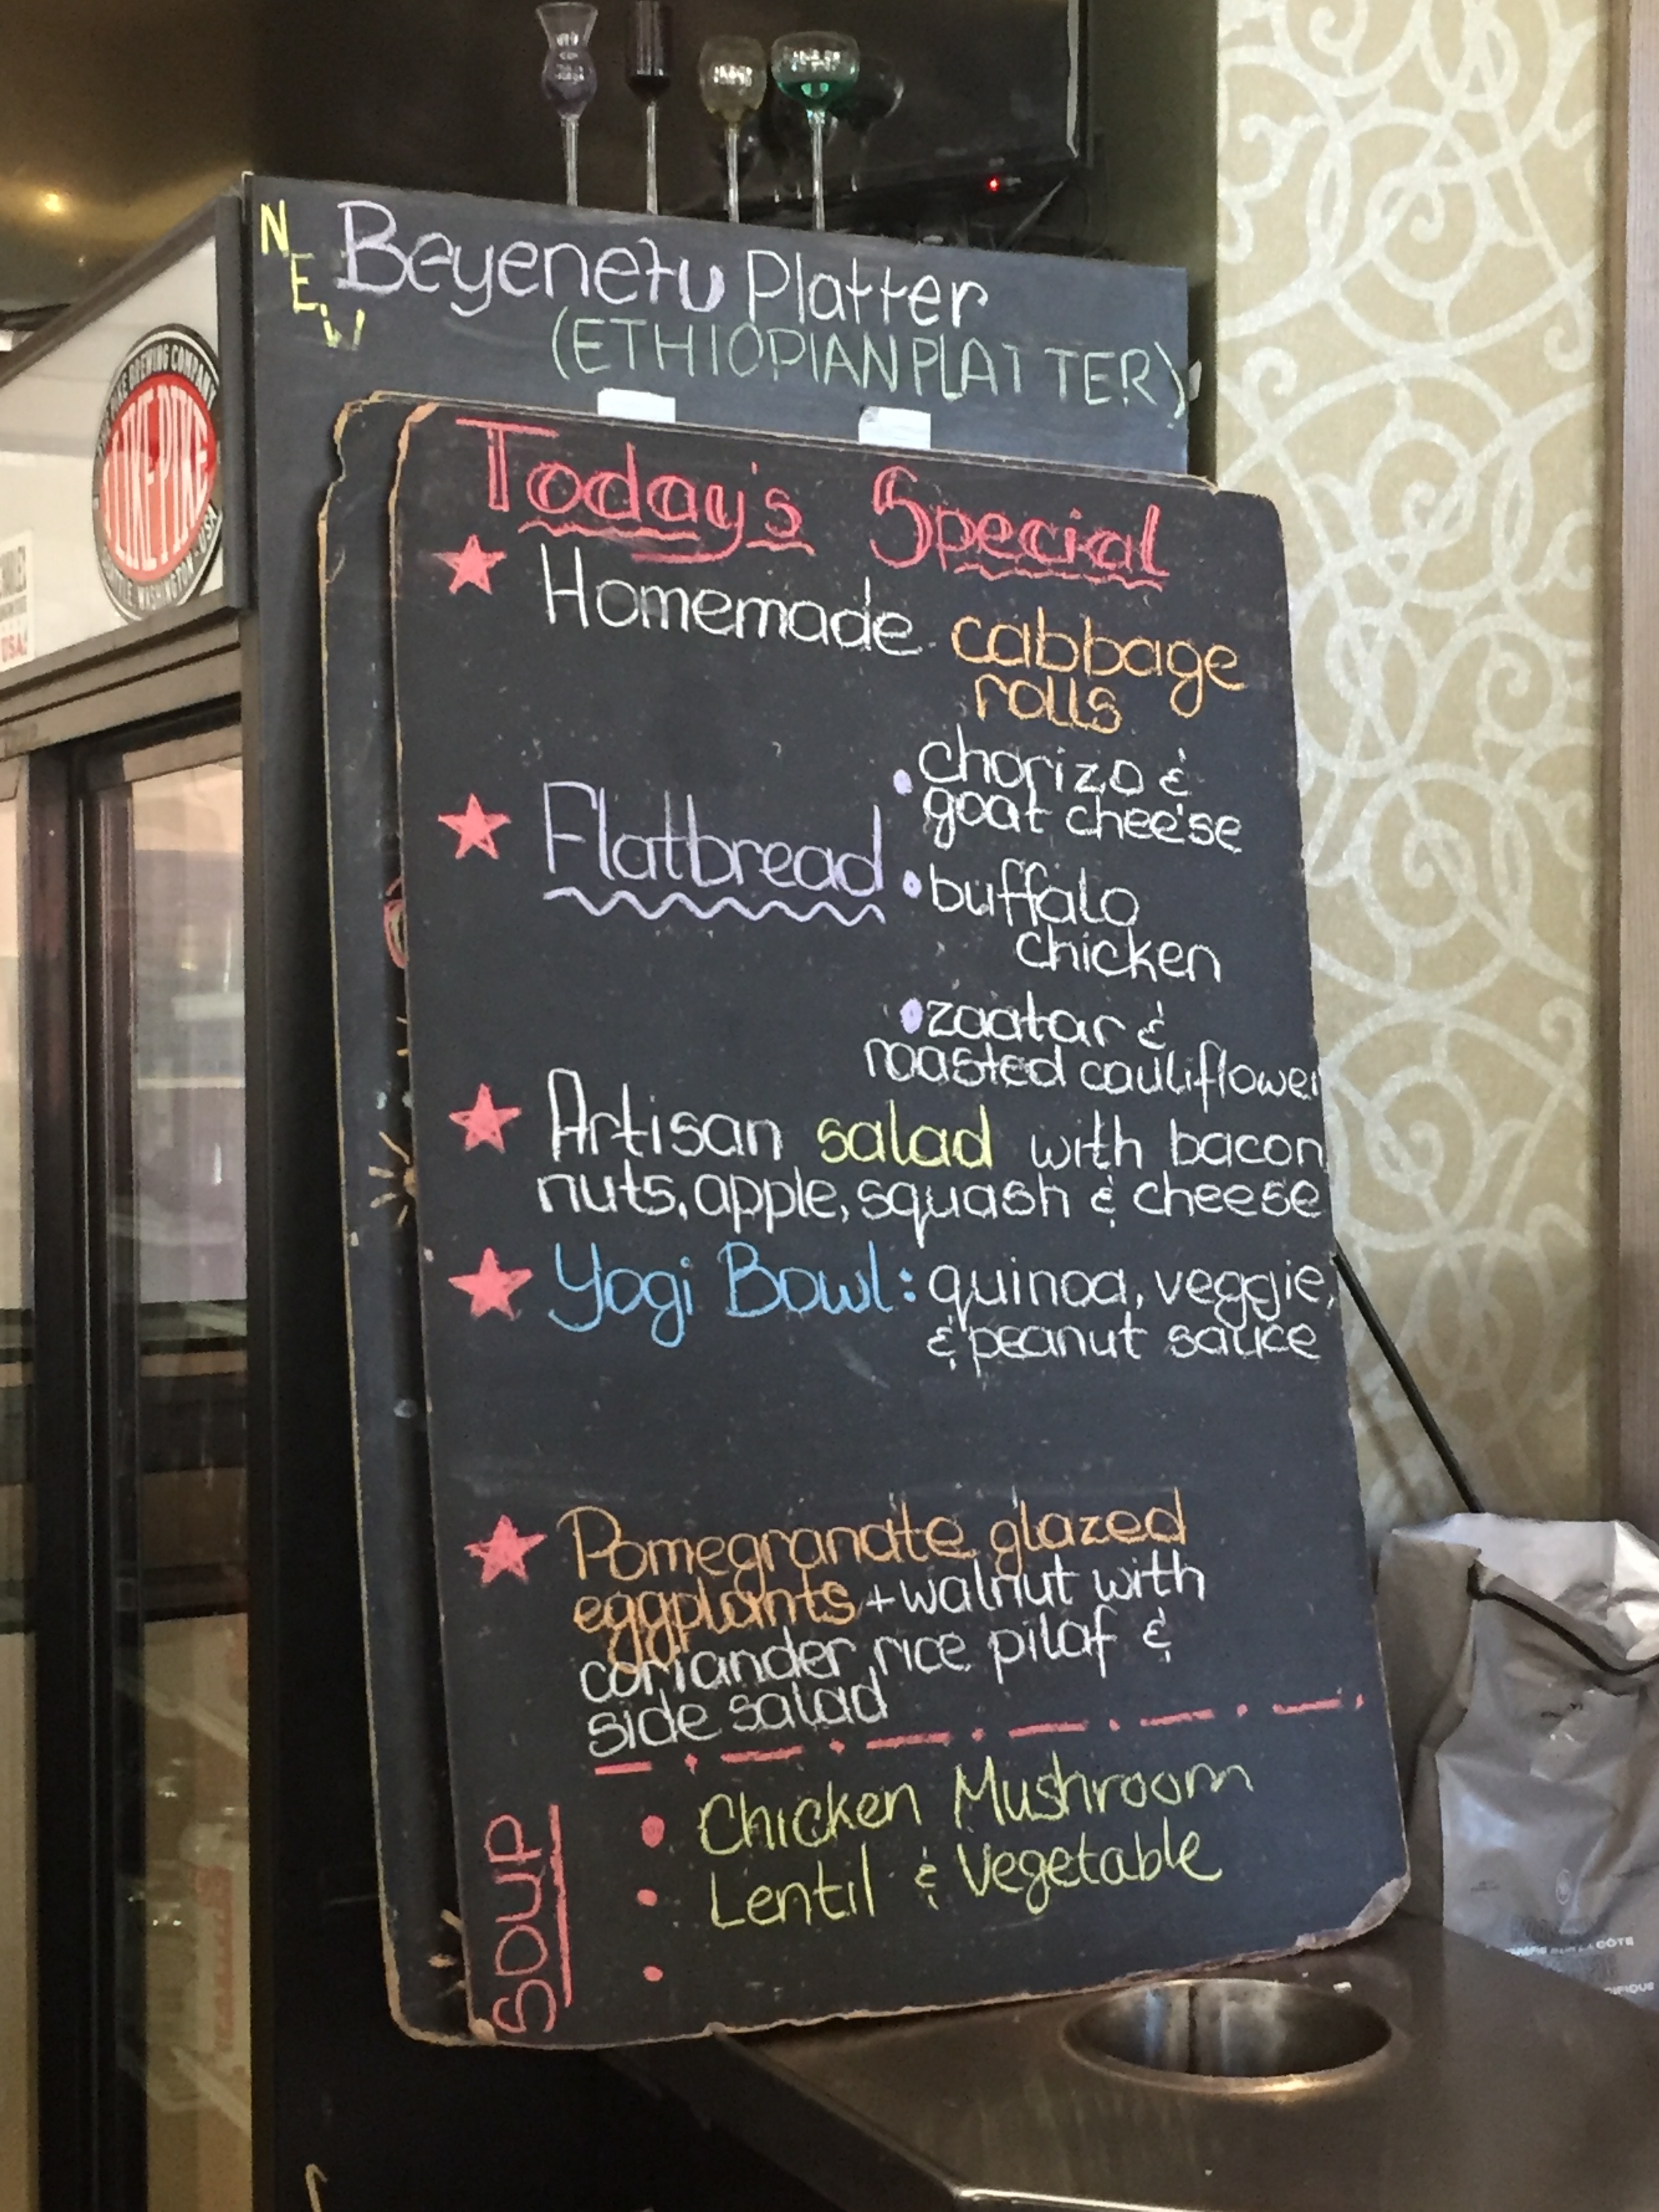 NEW
Beyenetu Platter
(ETHIOPIAN PLATTER)
BREWING COMPANY
LIKE PIKE
WASHINGTON
USA
USA!
Today's Special
Homemade cabbage
rolls
Flatbread
chorizo &
goat cheese
buffalo
chicken
zaatar &
roasted cauliflower
Artisan salad with bacon
nuts, apple, squash & cheese
Yogi Bowl: quinoa, veggie,
& peanut sauce
Pomegranate glazed
eggplants + walnut with
coriander rice pilaf &
side salad
SOUP
Chicken Mushroom
Lentil & Vegetable
CÔTE